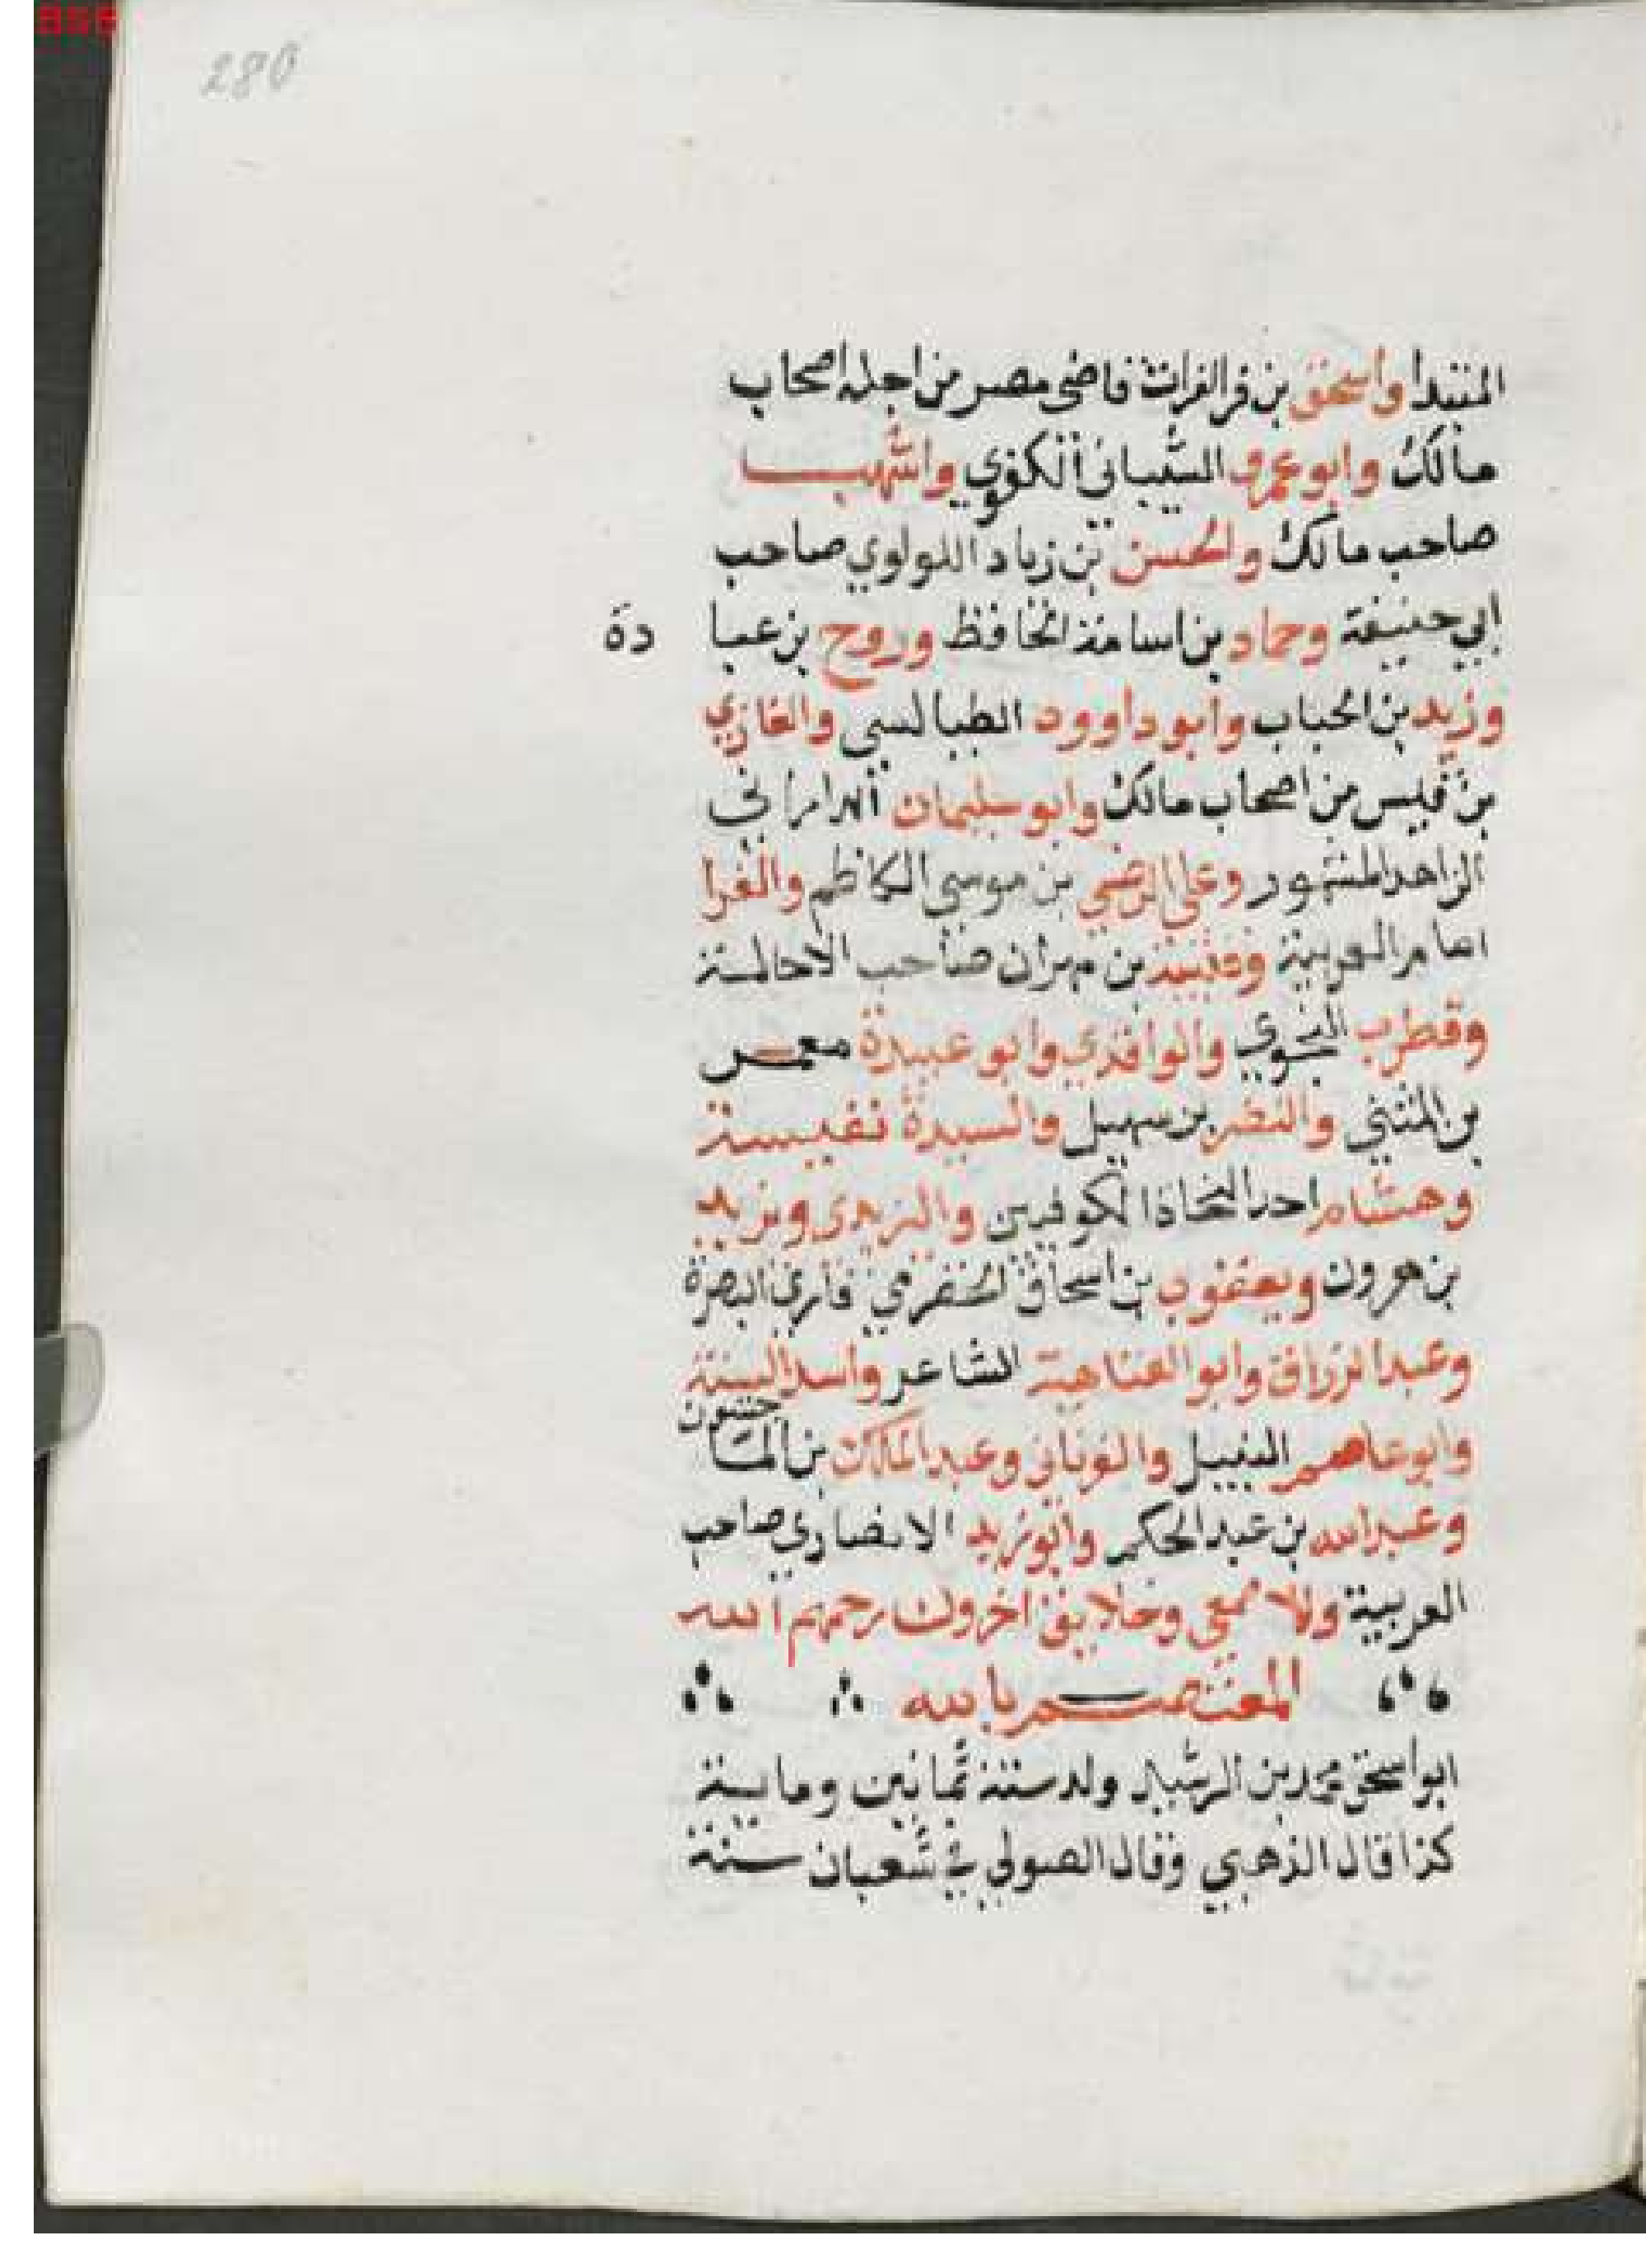 280
المبتدا واسحق بن فرالفرات قاضى مصر من اجله اصحاب
مالك وابوعمرو الشيبانى الكوفي واشهب
صاحب مالك والحسن بن زياد اللولوي صاحب
ابي حنيفة وحماد بن اسامة الحافظ وروح بن عبا دة
وزيد بن الحباب وابوداوود الطيالسى والغازي
بن قيس من اصحاب مالك وابو سليمان الداراني
الزاهد المشهور وعلى الرضى بن موسى الكاظم والفرا
امام العربية وقتيبة بن مهران صاحب الامالة
وقطرب النحوي والواقدي وابو عبيدة معمر
بن المثنى والنضر بن سهيل والسيدة نفيسة
وهشام احد النحاة الكوفيين واليزيدى ويزيد
بن هرون ويعقوب بن اسحاق الحضرمي قارئ البصرة
وعبدالرزاق وابو العتاهية الشاعر واسد السنة
وابوعاصم النبيل والفريابى وعبدالملك بن الماجشون
وعبدالله بن عبد الحكم وابوزيد الانصاري صاحب
العربية ولاصمعي وخلايق اخرون رحمهم الله
المعتصم بالله
ابواسحق محمد بن الرشيد ولد سنة ثمانين وماية
كذا قال الذهبي وقال الصولي في شعبان سنة